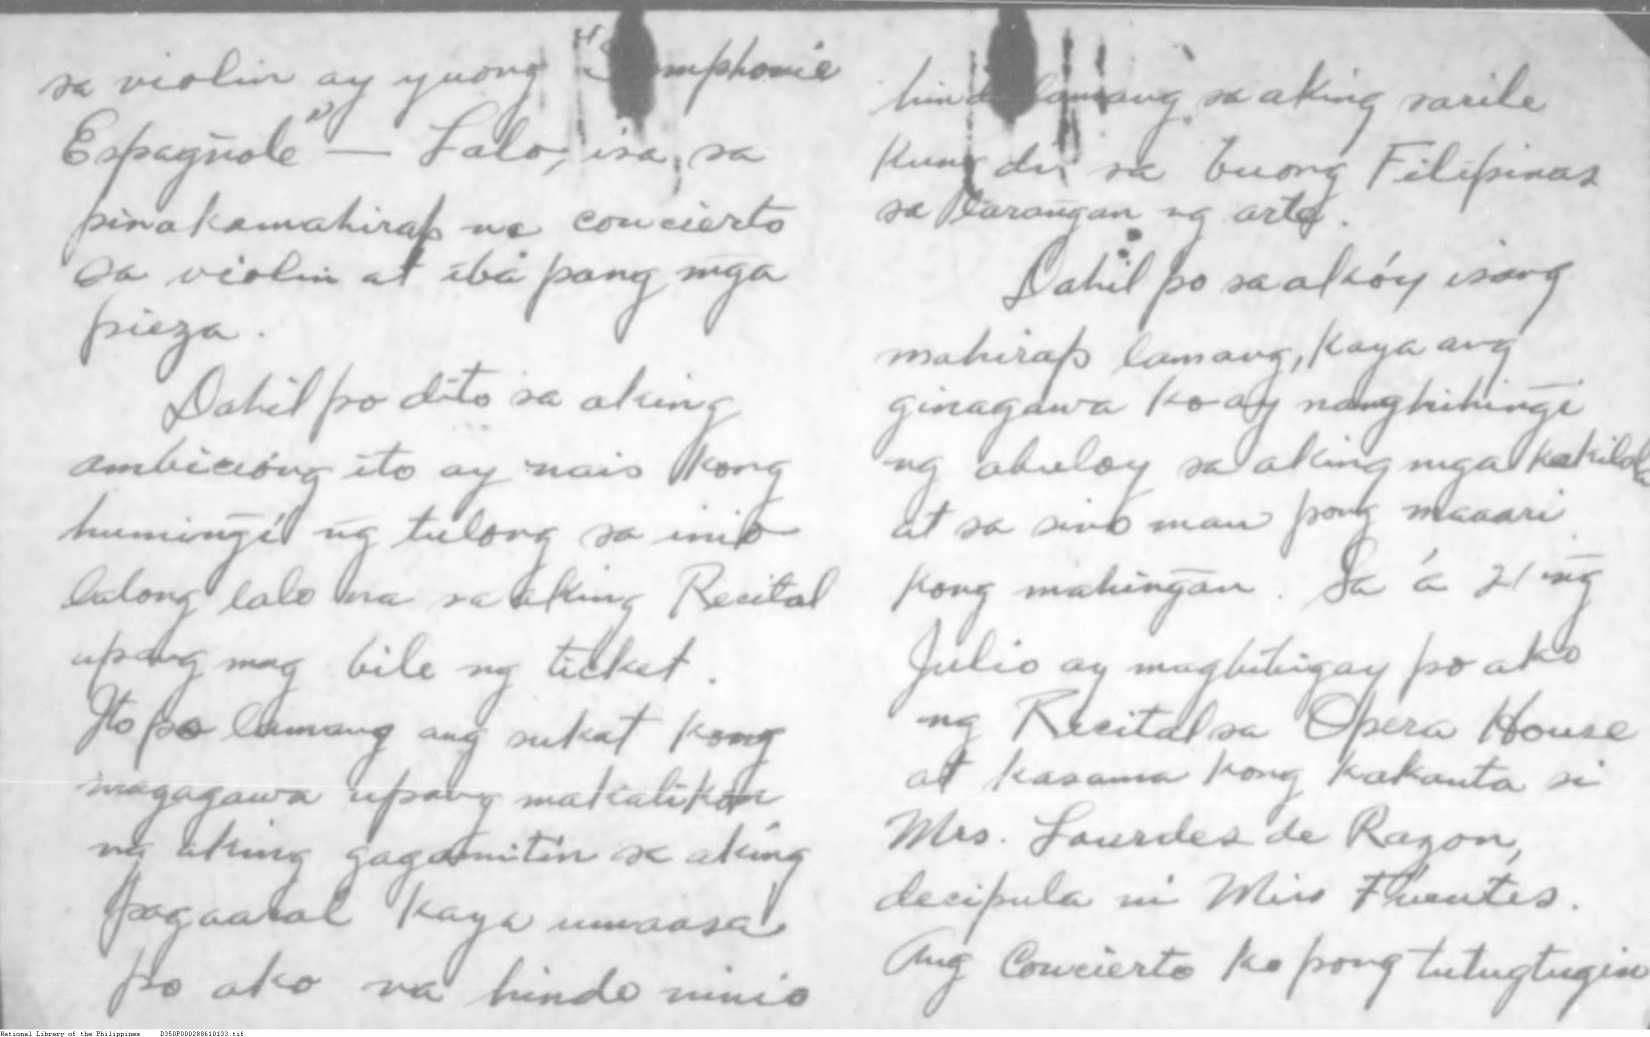 sa violin ay yuong "Symphonie
Espagñole" — Lalo, isa sa
pinakamahirap na concierto
sa violin at ibá pang mḡa
pieza.
Dahil po dito sa aking
ambicióng ito ay nais kong
huminḡí nḡ tulong sa inio
lalong lalo na sa aking Recital
upang mag bile ng ticket.
Ito po lamang ang sukat kong
magagawa upang makalikon
ng aking gagamitin sa aking
pagaaral kaya umaasa
po ako na hinde ninio
hindi lamang sa aking sarile
kung di sa buong Filipinas
sa larangan ng arte.
Dahil po sa akóy isang
mahirap lamang, kaya ang
ginagawa ko ay nanghihinḡi
ng abuloy sa aking mga kakilala
at sa sino man pong maaari
kong mahinḡan. Sa á 21 nḡ
Julio ay magbibigay po ako
ng Recital sa Opera House
at kasama kong kakanta si
Mrs. Lourdes de Razon,
decipula ni Miss Fuentes.
Ang Concierto ko pong tutugtugin
National Library of the Philippines D350P000288610133.tif